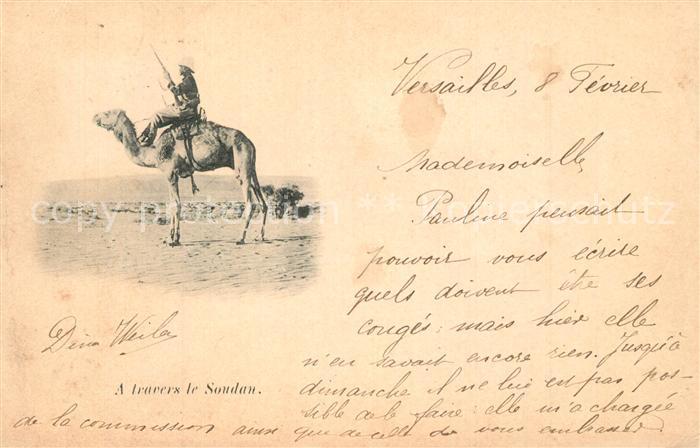 Versailles, 8 Février
Mademoiselle,
Pauline pensait
pouvoir vous écrire
quels doivent être ses
congés : mais hier elle
n'en savait encore rien. Jusqu'à
dimanche il ne lui est pas pos-
sible de le faire : elle m'a chargée
de la commission ainsi que de celle de vous embrasser.
Dina
A travers le Soudan.
copy protection